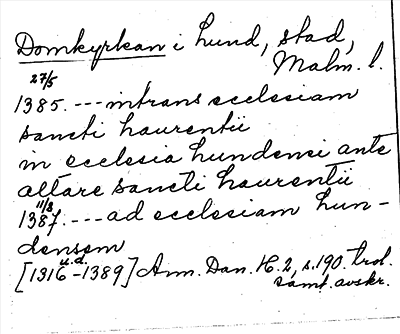 Domkyrkan i Lund, stad,
Malm. l.
27/5
1385. --- intrans ecclesiam
sancti Laurentii
in ecclesia Lundensi ante
altare sancti Laurentii
11/8
1387. --- ad ecclesiam Lun-
densem
u.å.
[1316-1389] Ann. Dan. H. 2, s. 190. trol.
samt. avskr.